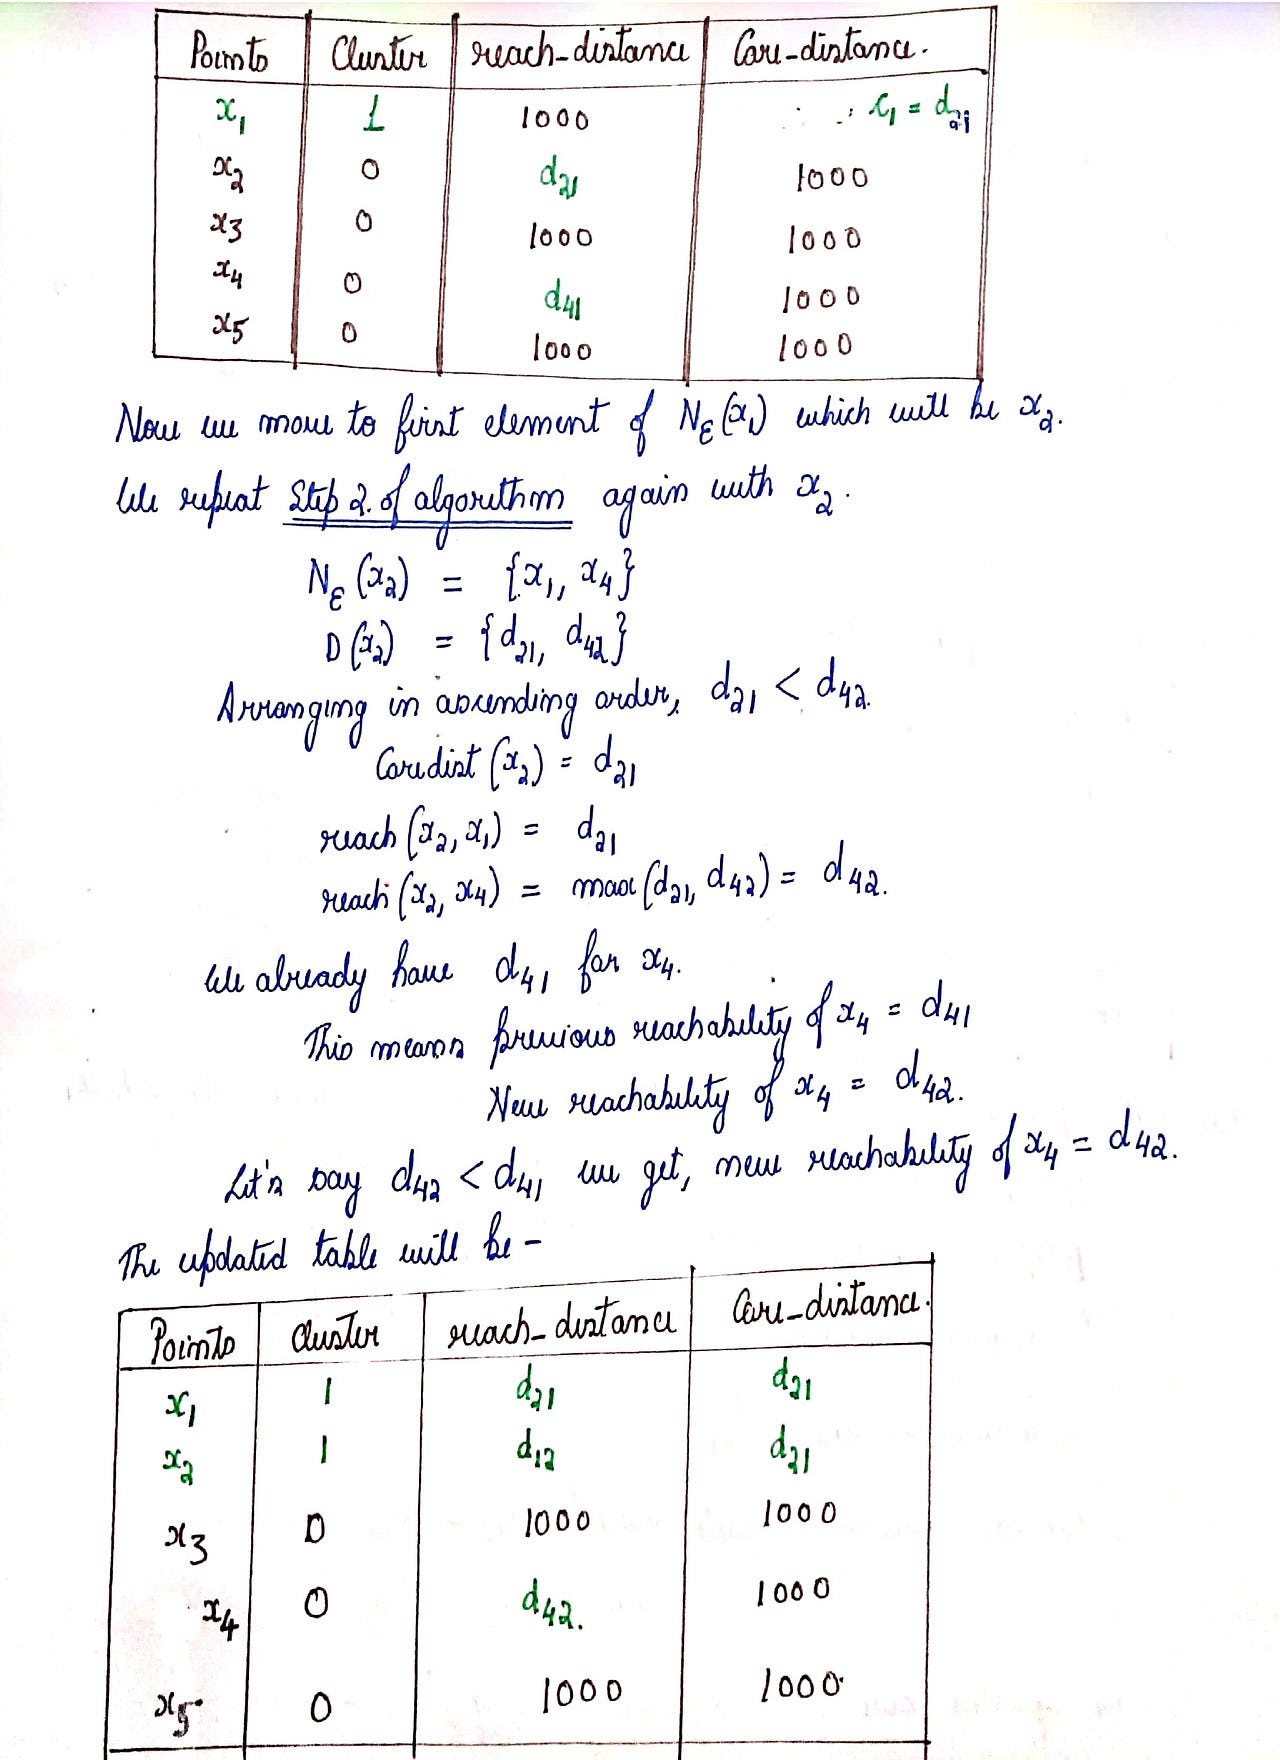 Points Cluster reach-distance Core-distance.
x₁ 1 1000 c₁ = d₂₁
x₂ 0 d₂₁ 1000
x₃ 0 1000 1000
x₄ 0 d₄₁ 1000
x₅ 0 1000 1000
Now we move to first element of Nε(x₁) which will be x₂.
We repeat Step 2. of algorithm again with x₂.
Nε(x₂) = {x₁, x₄}
D(x₂) = {d₂₁, d₄₂}
Arranging in ascending order, d₂₁ < d₄₂.
Coredist(x₂) = d₂₁
reach(x₂, x₁) = d₂₁
reach(x₂, x₄) = max(d₂₁, d₄₂) = d₄₂.
We already have d₄₁ for x₄.
This means previous reachability of x₄ = d₄₁
New reachability of x₄ = d₄₂.
Let's say d₄₂ < d₄₁ we get, new reachability of x₄ = d₄₂.
The updated table will be -
Points Cluster reach-distance Core-distance.
x₁ 1 d₂₁ d₂₁
x₂ 1 d₁₂ d₂₁
x₃ 0 1000 1000
x₄ 0 d₄₂. 1000
x₅ 0 1000 1000